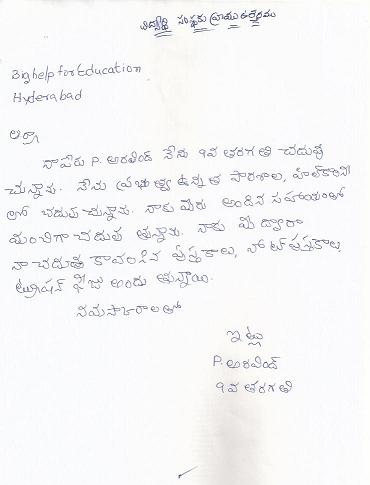 విద్యార్థి సంస్థకు వ్రాయు ఉత్తరము
Bighelp for Education
Hyderabad
అర్యా
నాపేరు P. అరవింద్ నేను 9వ తరగతి చదువు
చున్నాను. నేను ప్రభుత్వ ఉన్నత పాఠశాల,
లో చదువుచున్నాను. నాకు మీరు అందిన సహాయంతో
మంచిగా చదువు తున్నాను. నాకు మీ ద్వారా
నా చదువు కావలసిన పుస్తకాలు, నోట్ పుస్తకాలు,
ట్యూషన్ ఫీజు అందు తున్నాయి.
నమస్కారాలతో
ఇట్లు
P. అరవింద్
9వ తరగతి